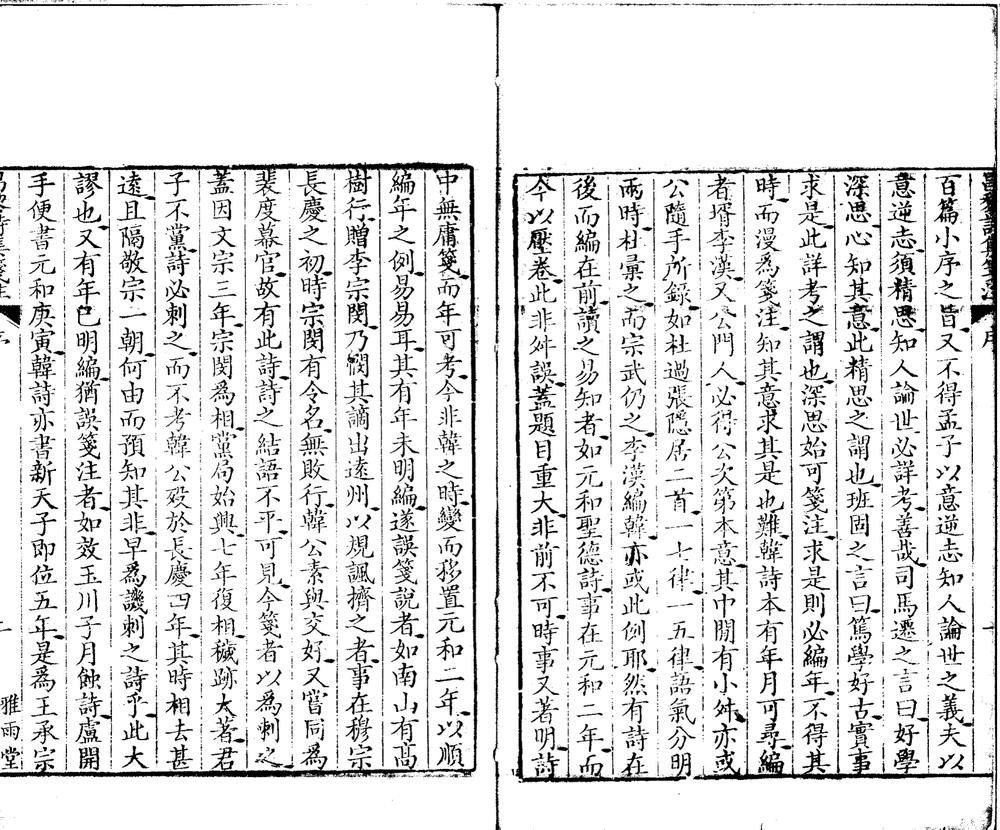 百篇小序之皆又不得孟子以意逆志知人論世之義夫以
意逆志須精思知人論世必詳考善哉司馬遷之言曰好學
深思心知其意此精思之謂也班固之言曰篤學好古實事
求是此詳考之謂也深思始可箋注求是則必編年不得其
時而漫爲箋注知其意求其是也難韓詩本有年月可尋編
者壻李漢又公門人必得公次第本意其中閒有小舛亦或
公隨手所錄如杜過張隱居二首一七律一五律語氣分明
兩時杜彚之而宗武仍之李漢編韓亦或此例耶然有詩在
後而編在前讀之易知者如元和聖德詩事在元和二年而
今以壓卷此非舛誤蓋題目重大非前不可時事又著明詩
中無庸箋而年可考今非韓之時變而移置元和二年以順
編年之例易易耳其有年未明編遂誤箋說者如南山有高
樹行贈李宗閔乃憫其謫出遠州以規諷擠之者事在穆宗
長慶之初時宗閔有令名無敗行韓公素與交好又嘗同爲
裴度幕官故有此詩詩之結語不平可見今箋者以爲刺之
蓋因文宗三年宗閔爲相黨局始興七年復相穢跡大著君
子不黨詩必刺之而不考韓公歿於長慶四年其時相去甚
遠且隔敬宗一朝何由而預知其非早爲譏刺之詩乎此大
謬也又有年已明編猶誤箋注者如效玉川子月蝕詩盧開
手便書元和庚寅韓詩亦書新天子即位五年是爲王承宗
雅雨堂